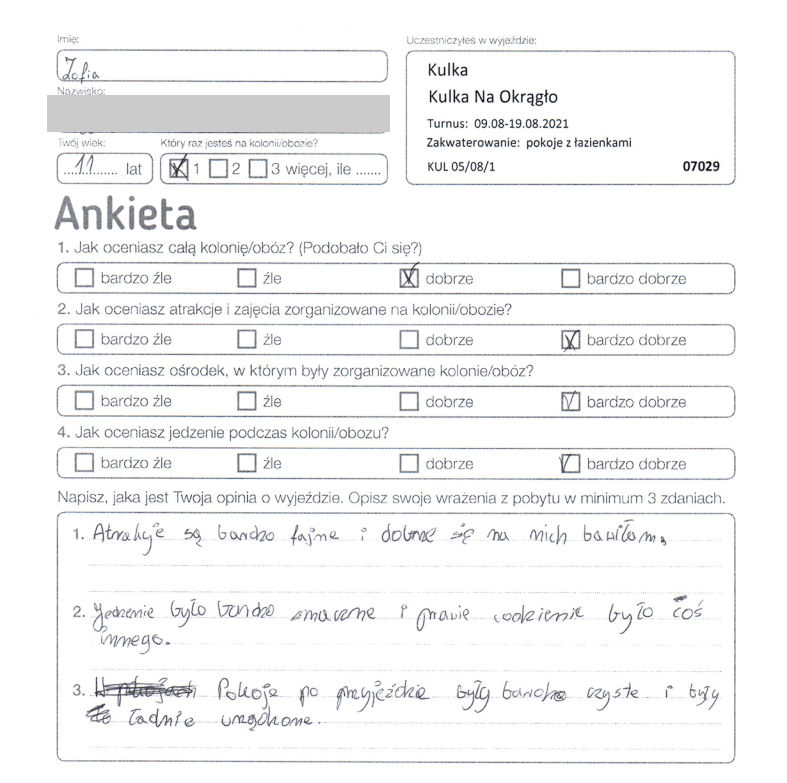 Imię:
Zofia
Nazwisko:
Twój wiek:
11 lat
Który raz jesteś na kolonii/obozie?
1 2 3 więcej, ile .......
Uczestniczyłeś w wyjeździe:
Kulka
Kulka Na Okrągło
Turnus: 09.08-19.08.2021
Zakwaterowanie: pokoje z łazienkami
KUL 05/08/1 07029
Ankieta
1. Jak oceniasz całą kolonię/obóz? (Podobało Ci się?)
bardzo źle źle dobrze bardzo dobrze
2. Jak oceniasz atrakcje i zajęcia zorganizowane na kolonii/obozie?
bardzo źle źle dobrze bardzo dobrze
3. Jak oceniasz ośrodek, w którym były zorganizowane kolonie/obóz?
bardzo źle źle dobrze bardzo dobrze
4. Jak oceniasz jedzenie podczas kolonii/obozu?
bardzo źle źle dobrze bardzo dobrze
Napisz, jaka jest Twoja opinia o wyjeździe. Opisz swoje wrażenia z pobytu w minimum 3 zdaniach.
1. Atrakcje są bardzo fajne i dobrze się na nich bawiłam.
2. Jedzenie było bardzo smaczne i prawie codziennie było coś
innego.
3. Pokoje po przyjeździe były bardzo czyste i były
ładnie urządzone.